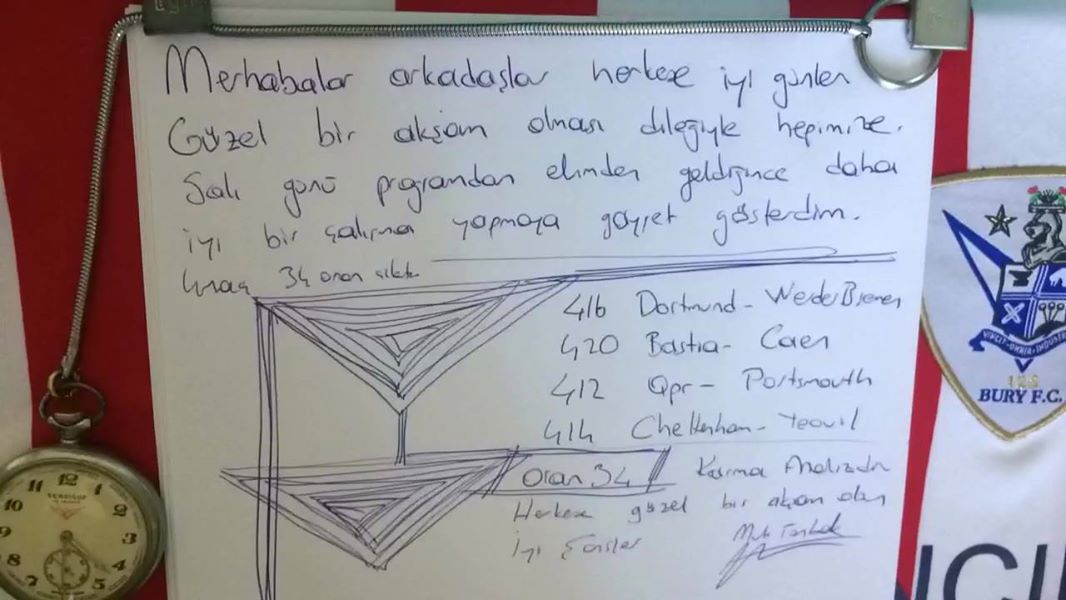 Merhabalar arkadaşlar herkese iyi günler
Güzel bir akşam olması dileğiyle hepimize.
Salı günü programdan elimden geldiğince daha
iyi bir çalışma yapmaya gayret gösterdim.
34 oran
416 Dortmund - Werder Bremen
420 Bastia - Caen
412 Qpr - Portsmouth
414 Cheltenham - Yeovil
Oran 34 Karma Analizden
Herkese güzel bir akşam olsun
İyi Şanslar
12
11
10
9
8
7
6
5
4
3
2
SERKISOF
BURY F.C.